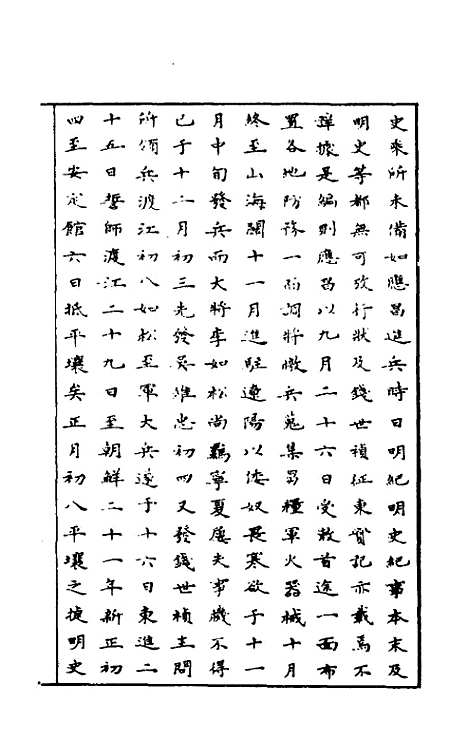 史乘所未備如應昌進兵時日明紀明史紀事本末及
明史等都無可攷行狀及錢世禎征東實記亦載焉不
詳據是編則應昌以九月二十六日受敕首途一面布
置各地防豫一面調將徵兵蒐集芻糧軍火器械十月
終至山海關十一月進駐遼陽以倭奴畏寒欲于十一
月中旬發兵而大將李如松尚羈寧夏屢失事機不得
已于十二月初三先發吳惟忠初四又發錢世楨王問
所領兵渡江初八如松至軍大兵遂于十六日東進二
十五日誓師渡江二十九日至朝鮮二十一年新正初
四至安定館六日抵平壤矣正月初八平壤之捷明史